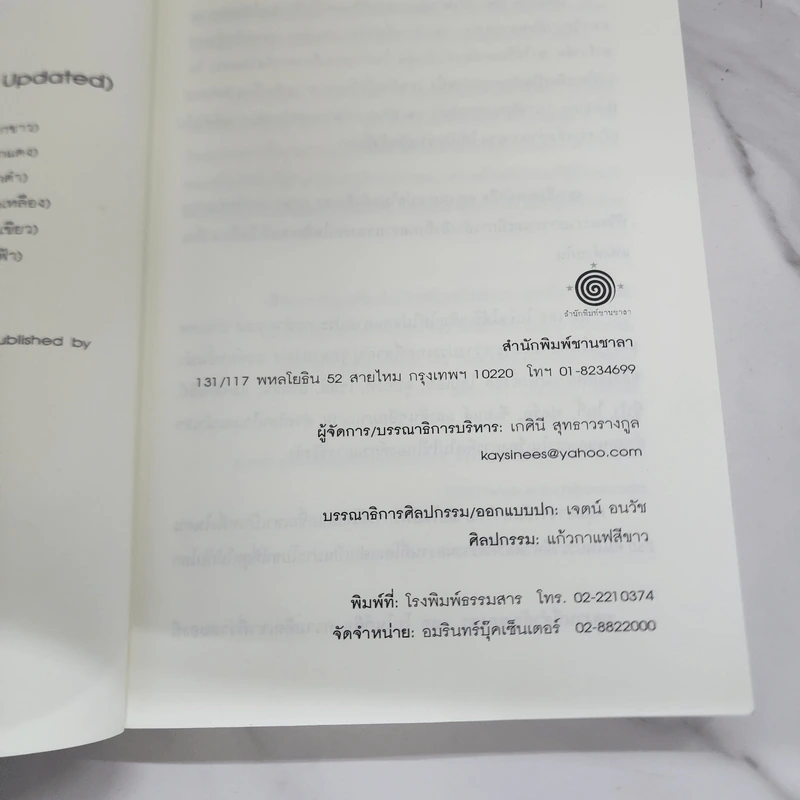 Updated)
ขาว)
แดง)
ดำ)
เหลือง)
เขียว)
ฟ้า)
ublished by
สำนักพิมพ์ชานชาลา
สำนักพิมพ์ชานชาลา
131/117 พหลโยธิน 52 สายไหม กรุงเทพฯ 10220 โทฯ 01-8234699
ผู้จัดการ/บรรณาธิการบริหาร: เกศินี สุทธาวรางกูล
kaysinees@yahoo.com
บรรณาธิการศิลปกรรม/ออกแบบปก: เจตน์ อนวัช
ศิลปกรรม: แก้วกาแฟสีขาว
พิมพ์ที่: โรงพิมพ์ธรรมสาร โทร. 02-2210374
จัดจำหน่าย: อมรินทร์บุ๊คเซ็นเตอร์ 02-8822000